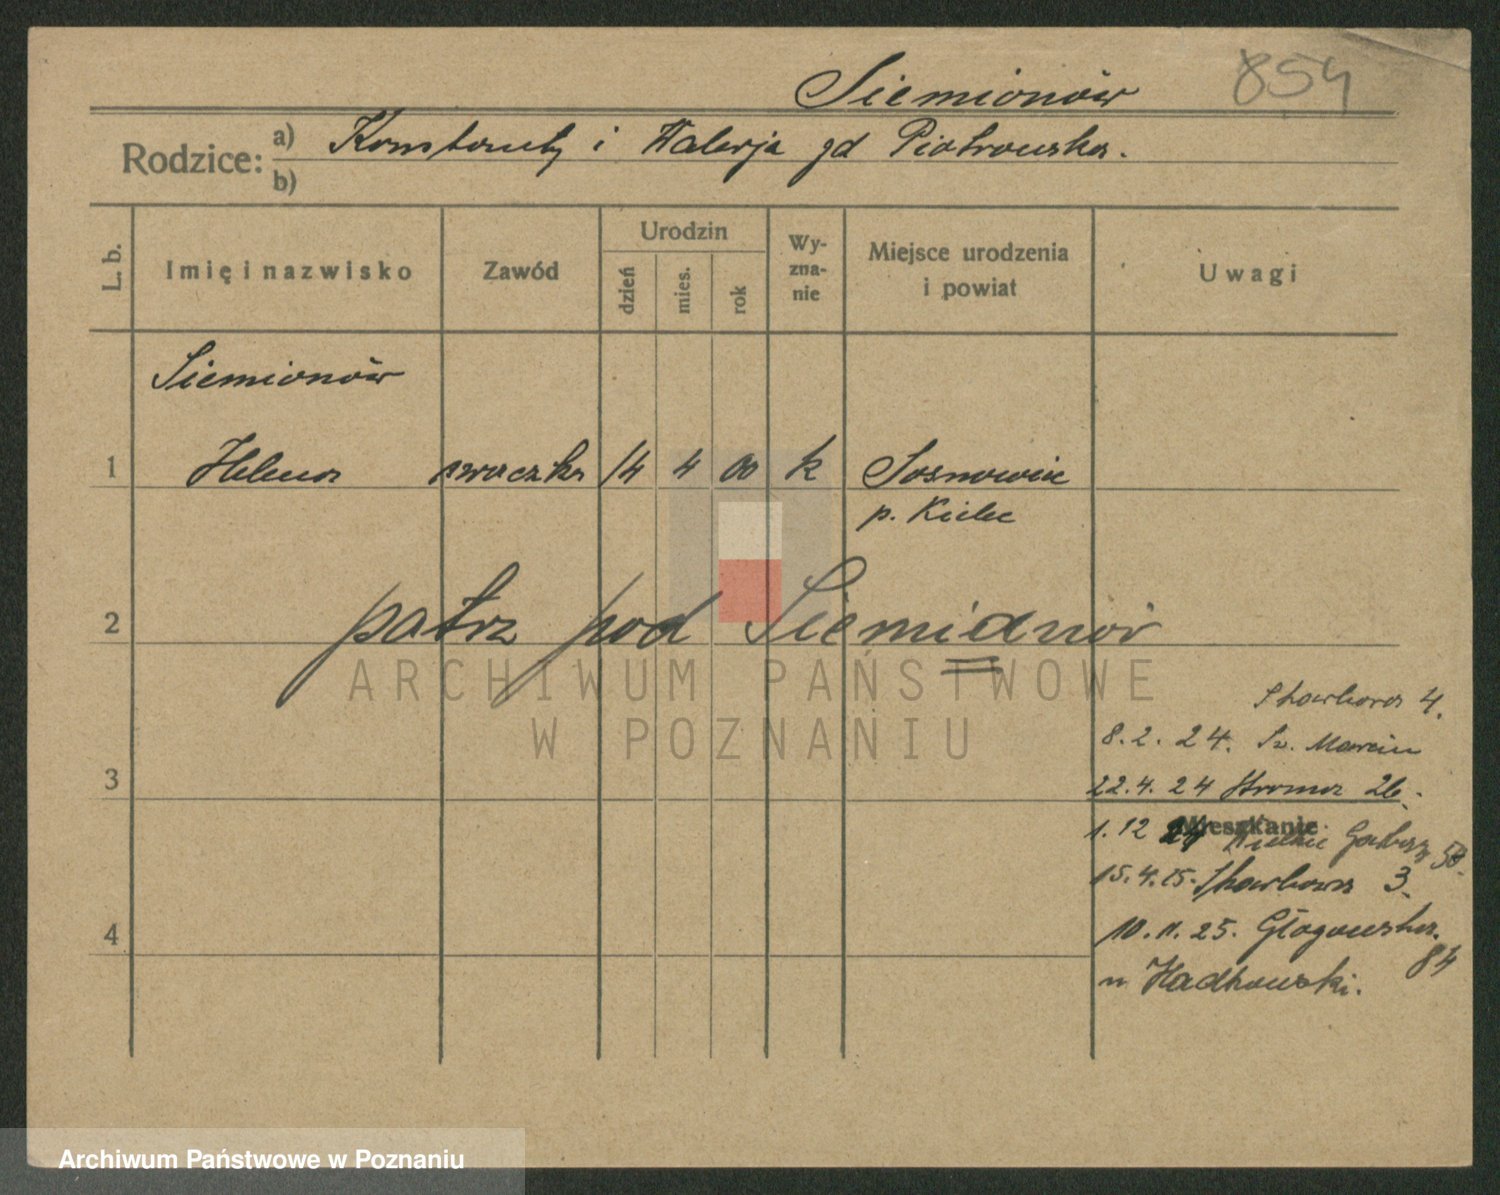 Siemionów
854
Rodzice: a) Konstanty i Walerja zd Piotrowska.
b)
L. b. Imię i nazwisko Zawód Urodzin dzień mies. rok Wy-zna-nie Miejsce urodzenia i powiat Uwagi
Siemionów
1 Helena szwaczka 14 4 00 k Sosnowiec
p. Kielce
2 patrz pod Siemianów
ARCHIWUM PAŃSTWOWE
W POZNANIU
Skarbowa 4.
8.2.24. Św. Marcin
3 22.4.24 Stroma 26.
Mieszkanie
1.12 24 Wielkie Garbary 58.
15.4.25. Skarbowa 3.
4 10.11.25. Głogowska 84
u Hadkowski.
Archiwum Państwowe w Poznaniu